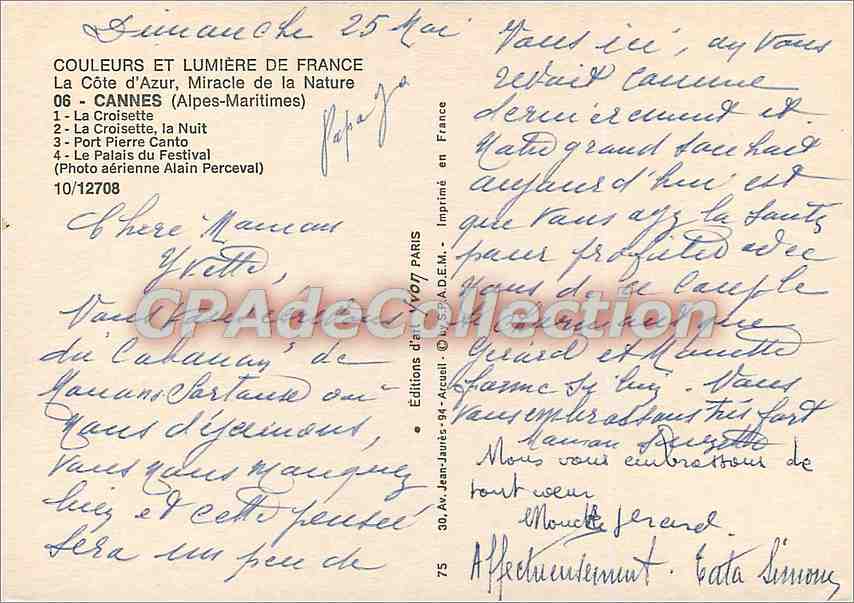 Dimanche 25 Mai
COULEURS ET LUMIÈRE DE FRANCE
La Côte d'Azur, Miracle de la Nature
06 - CANNES (Alpes-Maritimes)
1 - La Croisette
2 - La Croisette, la Nuit
3 - Port Pierre Canto
4 - Le Palais du Festival
(Photo aérienne Alain Perceval)
10/12708
Chère Maman
Yvette,
Vous
du "Cabanay" de
Mouans Sartoux où
nous déjeunons,
vous nous manquez
bien et cette pensée
sera un peu de
CPAdeCollection
Éditions d'art Yvon PARIS
75 30, Av. Jean-Jaurès - 94 - Arcueil - © by S.P.A.D.E.M. - Imprimé en France
Vous ici, on vous
revoit comme
dernièrement et
notre grand souhait
aujourd'hui est
que vous ayez la santé
pour profiter avec
nous de ce couple
que
Gérard et Monette
forme si bien. Nous
vous embrassons très fort
Maman Suzette
Nous vous embrassons de
tout coeur
Gérard.
Affectueusement. Tata Simone